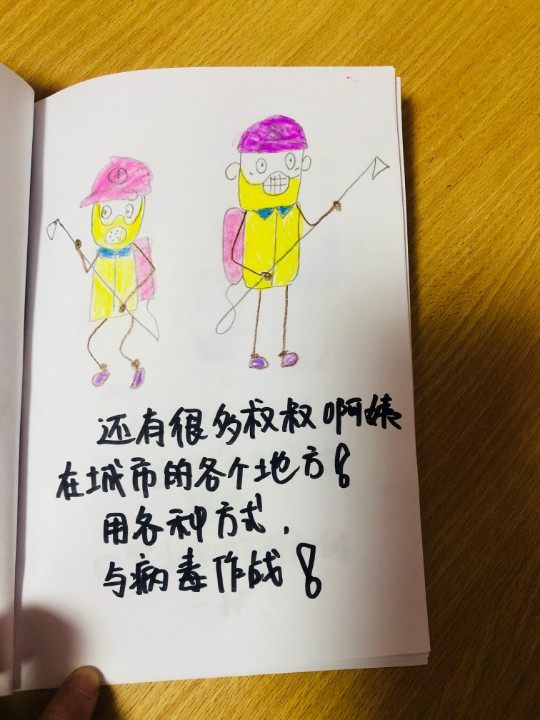 还有很多叔叔啊姨
在城市的各个地方！
用各种方式，
与病毒作战！